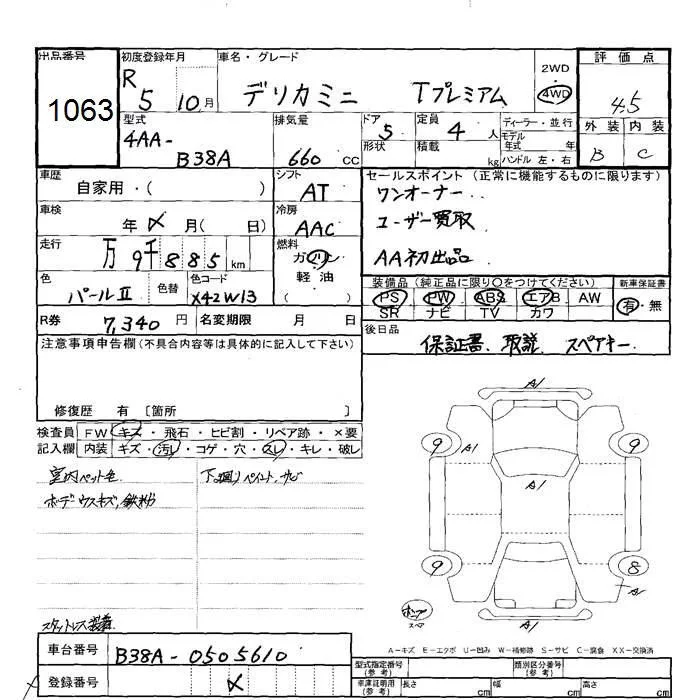 出品番号 1063
初度登録年月 R 5 10月
車名・グレード デリカミニ Tプレミアム
2WD 4WD
評価点 4.5
外装 B 内装 C
型式 4AA- B38A
排気量 660 cc
ドア 5 形状
定員 4 人 積載 kg
ディーラー・並行
モデル年式 年
ハンドル 左・右
車歴 自家用・( )
シフト AT
セールスポイント(正常に機能するものに限ります)
ワンオーナー
ユーザー買取
AA初出品
車検 年 月( 日)
冷房 AAC
走行 万 9千885 km
燃料 ガソリン 軽油
色 パールⅡ 色替
色コード X42W13
装備品(純正品に限り○をつけてください)
PS PW ABS エアB AW
SR ナビ TV カワ
新車保証書 有・無
R券 7,340 円 名変期限 月 日
後日品 保証書、取説、スペアキー
注意事項申告欄(不具合内容等は具体的に記入して下さい)
修復歴 有 〔箇所 〕
検査員 FW キズ・飛石・ヒビ割・リペア跡・×要
記入欄 内装 キズ・汚レ・コゲ・穴・スレ・キレ・破レ
室内ペット毛
ボデーウスキズ,鉄粉
下廻りペイント,サビ
スタットレス装着
A1
9 A1 9
A1
9 8
A1
A1
スペア
A-キズ E-エクボ U-凹み W-補修跡 S-サビ C-腐食 XX-交換済
車台番号 B38A-0505610
登録番号
型式指定番号(参考) 類別区分番号(参考)
車庫証明用(参考) 長さ cm 幅 cm 高さ cm